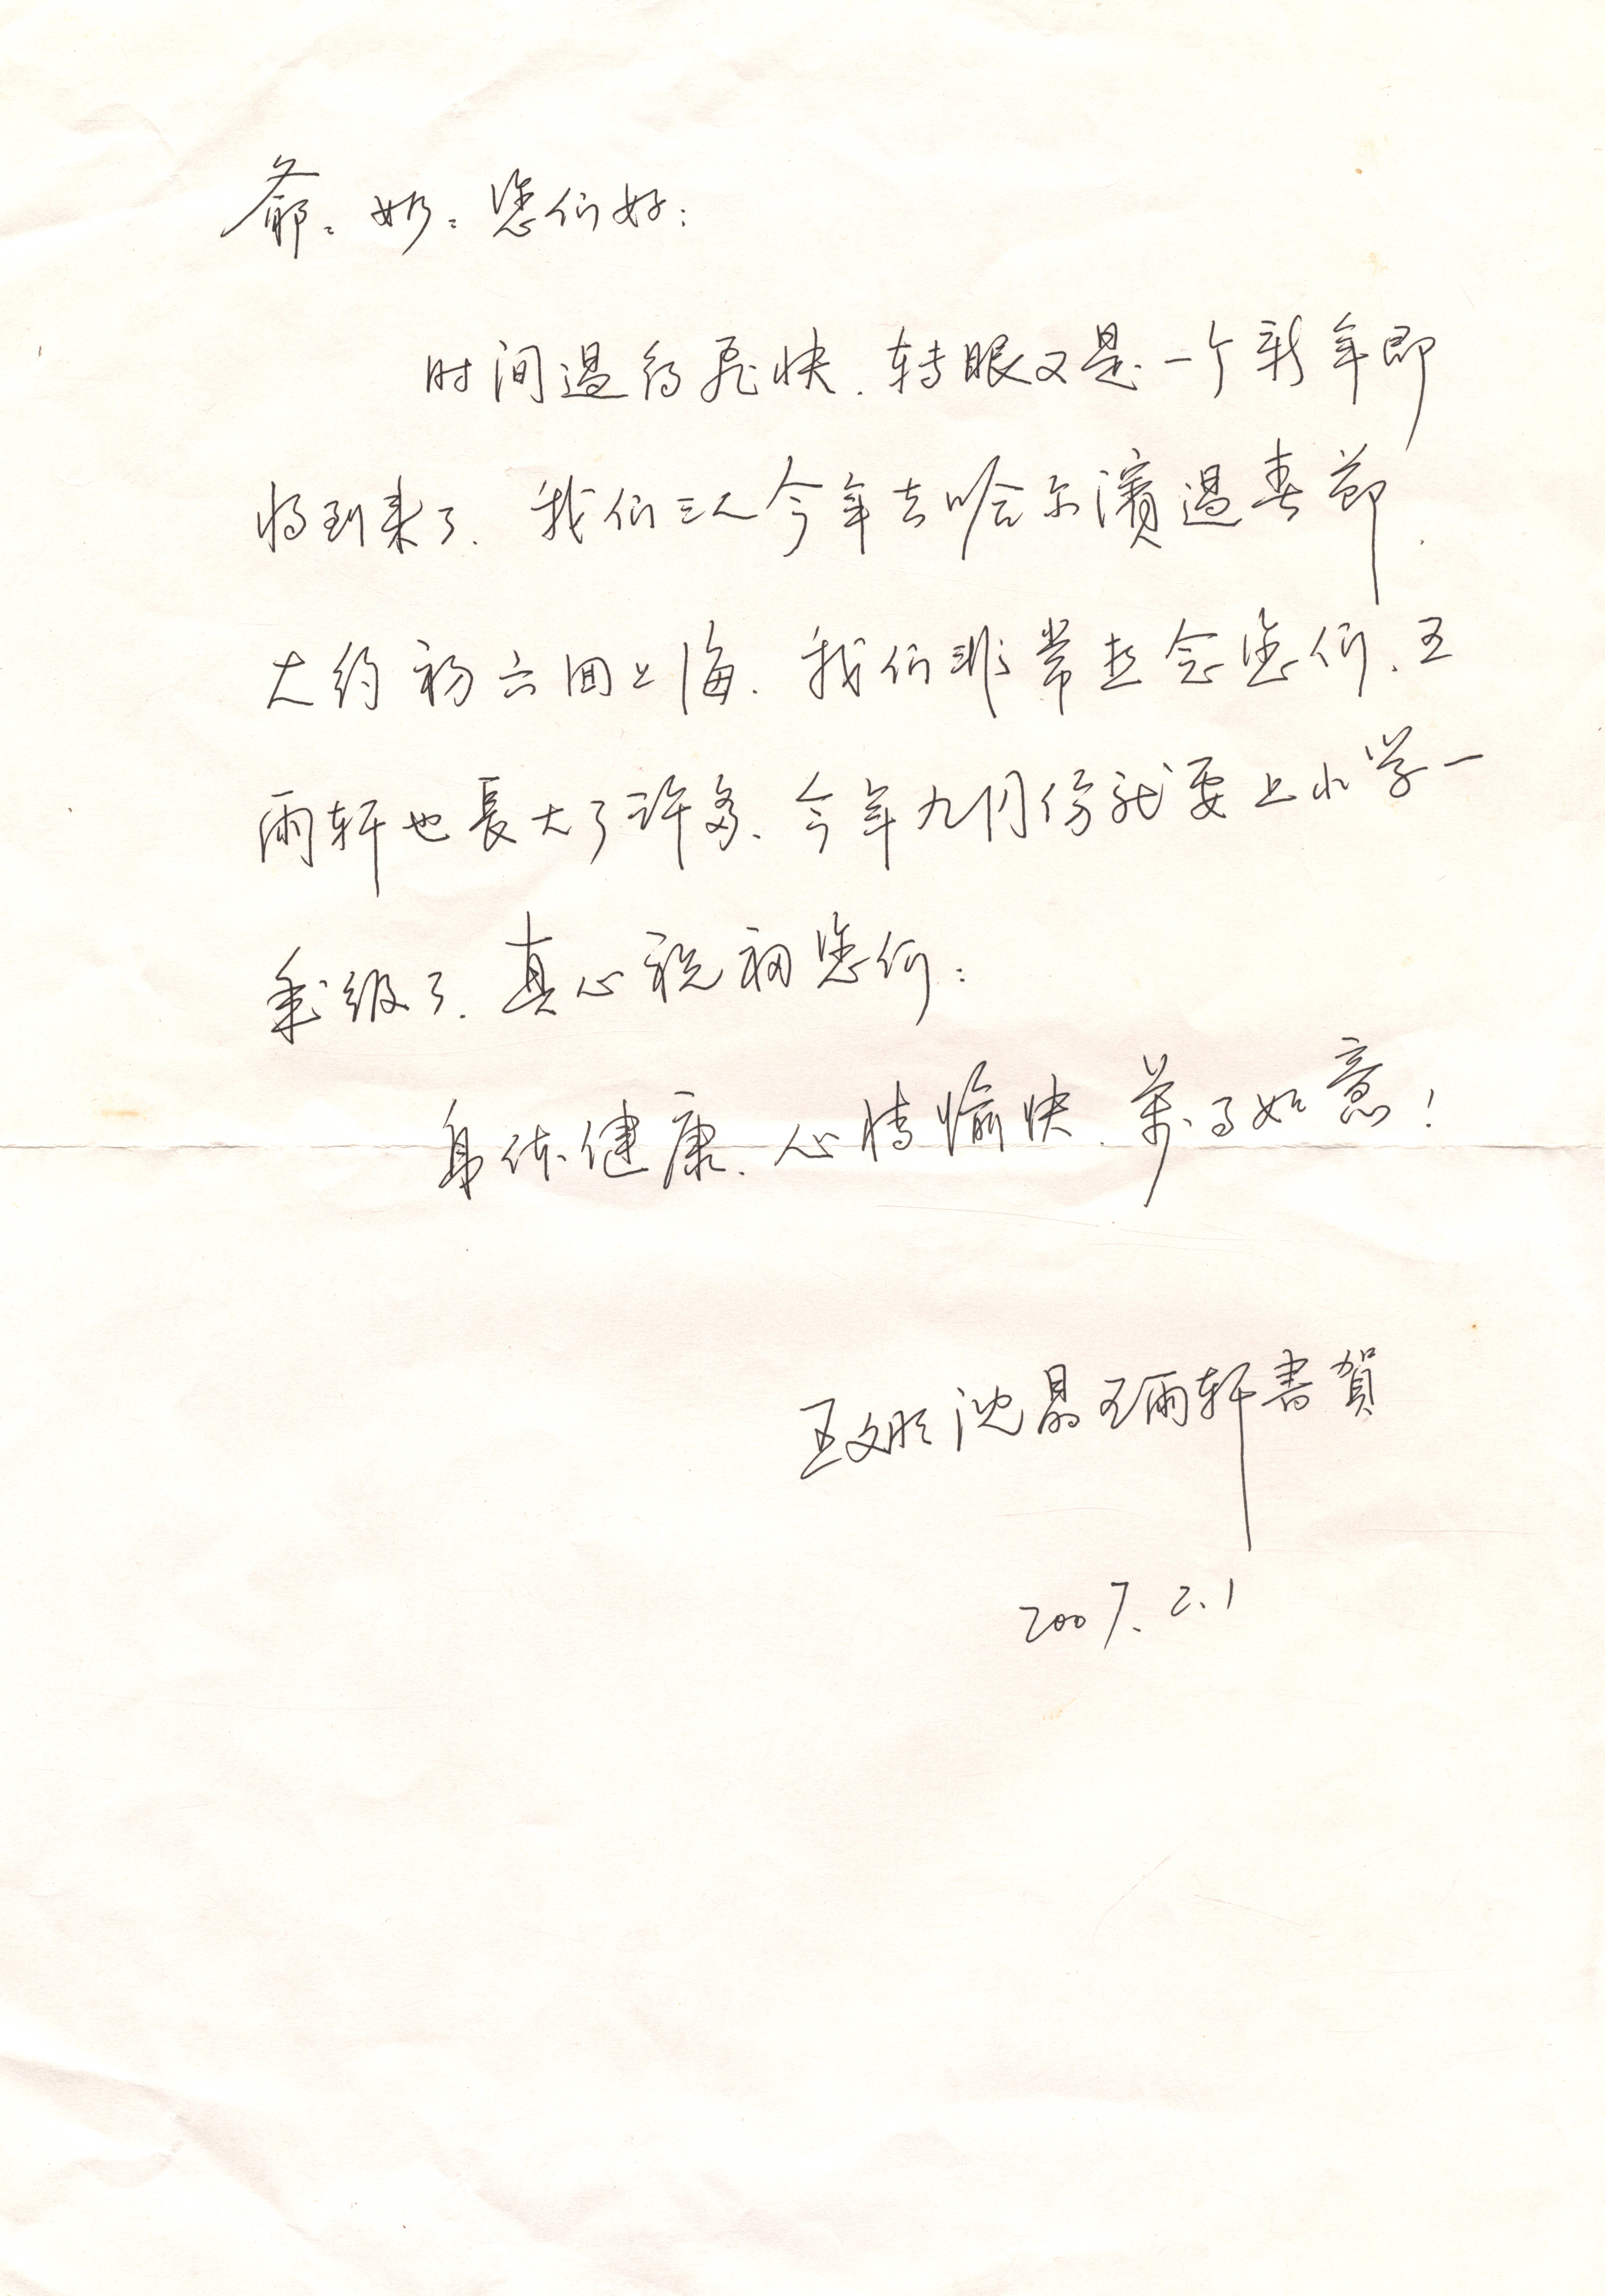 爺：奶：您们好：
时间過得飛快．转眼又是一个新年即
将到来了．我们三人今年去哈尔濱過春節．
大约初六回上海．我们非常想念您们．王
雨轩也長大了许多．今年九月份就要上小学一
年级了．真心祝福您们：
身体健康．心情愉快．萬事如意！
王文彤 沈晶 王雨轩書賀
2007.2.1